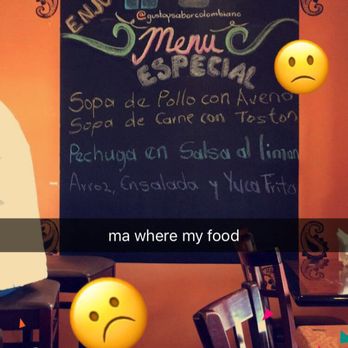 ENJO
@gustoysaborcolombiano
Menu
ESPECIAL
Sopa de Pollo con Aveno
Sopa de Carne con Toston
Pechuga en Salsa al limon
Arroz, Ensalada y Yuca Frita
ma where my food